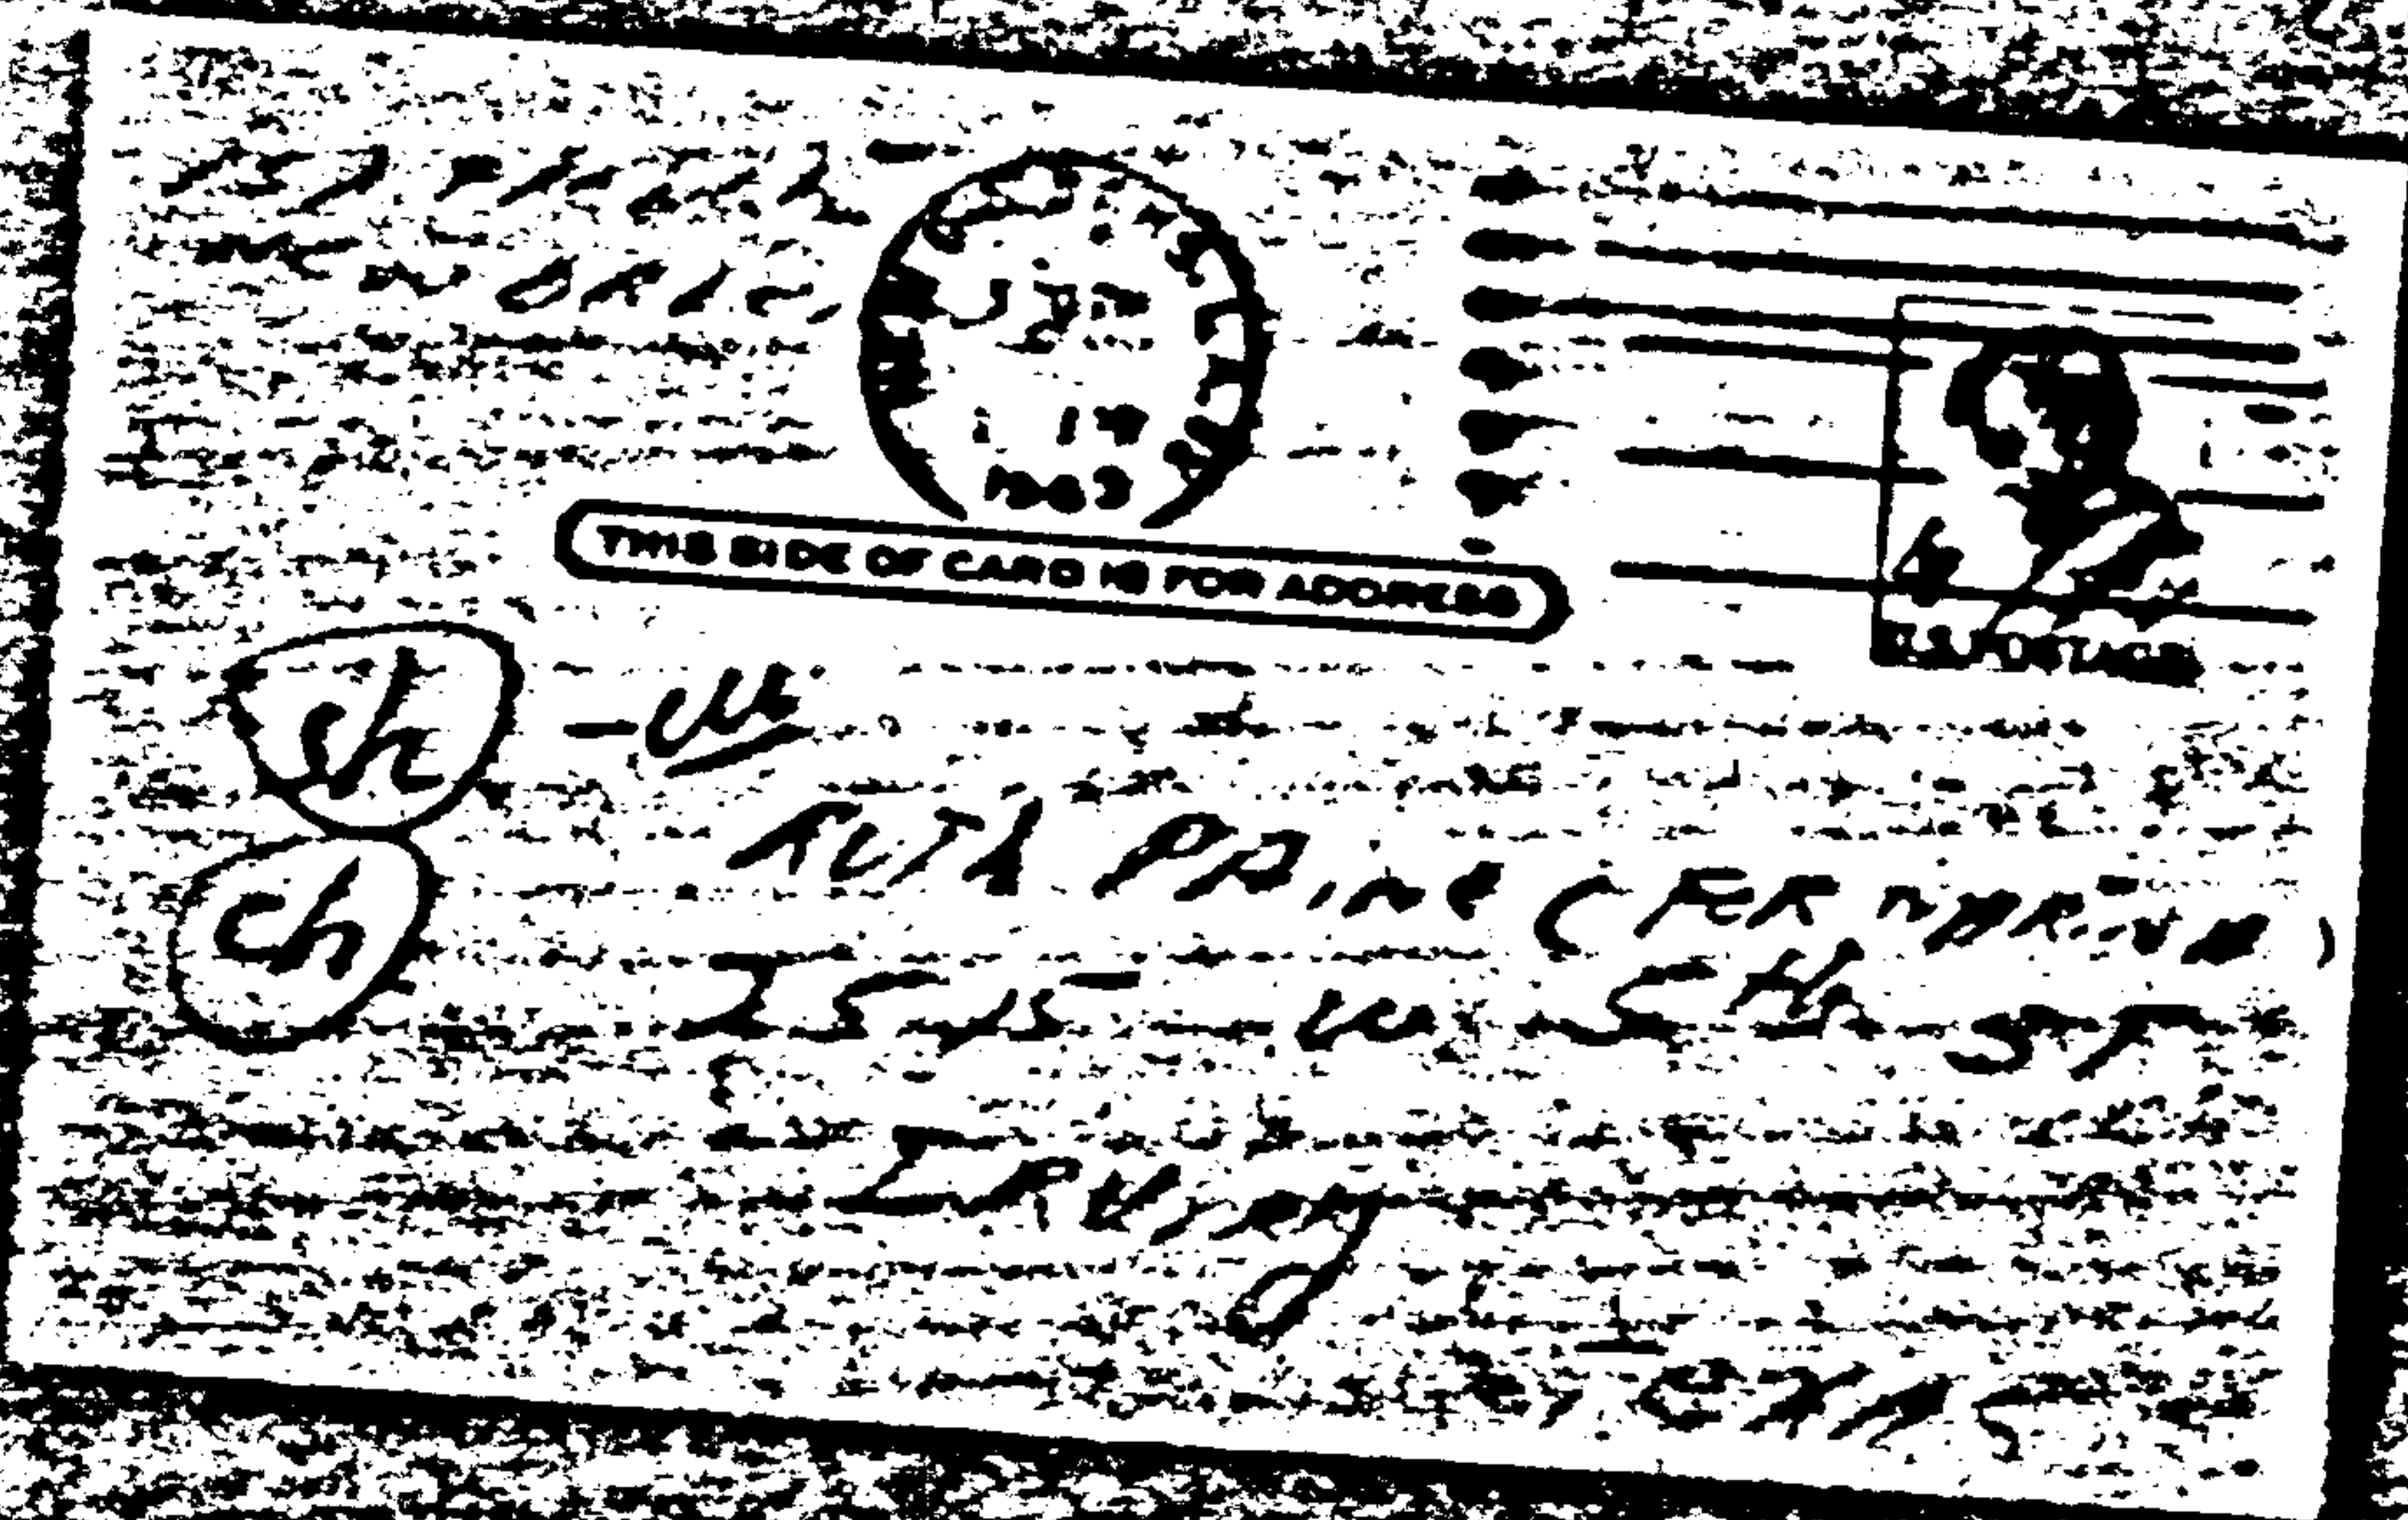 NEW ORLE,
SEP
17
1963
THIS SIDE OF CARD IS FOR ADDRESS
U.S. POSTAGE
ch
ch
RUTH PAINE (FER MARINA)
2515 W. 5th ST
IRVING
TEXAS